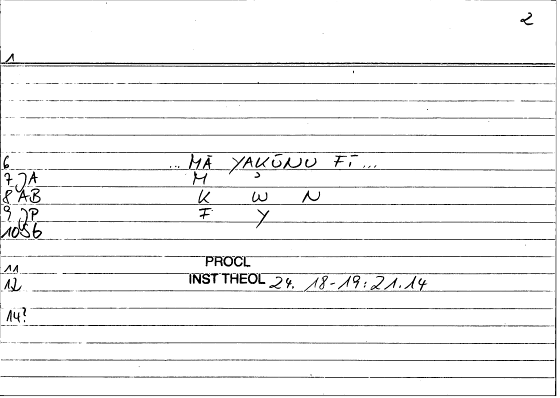 2
1
6 ... MĀ YAKŪNU FĪ ...
7 JA M ʾ
8 AB K W N
9 JP F Y
10 56
11 PROCL
12 INST THEOL 24. 18-19:21.14
14?